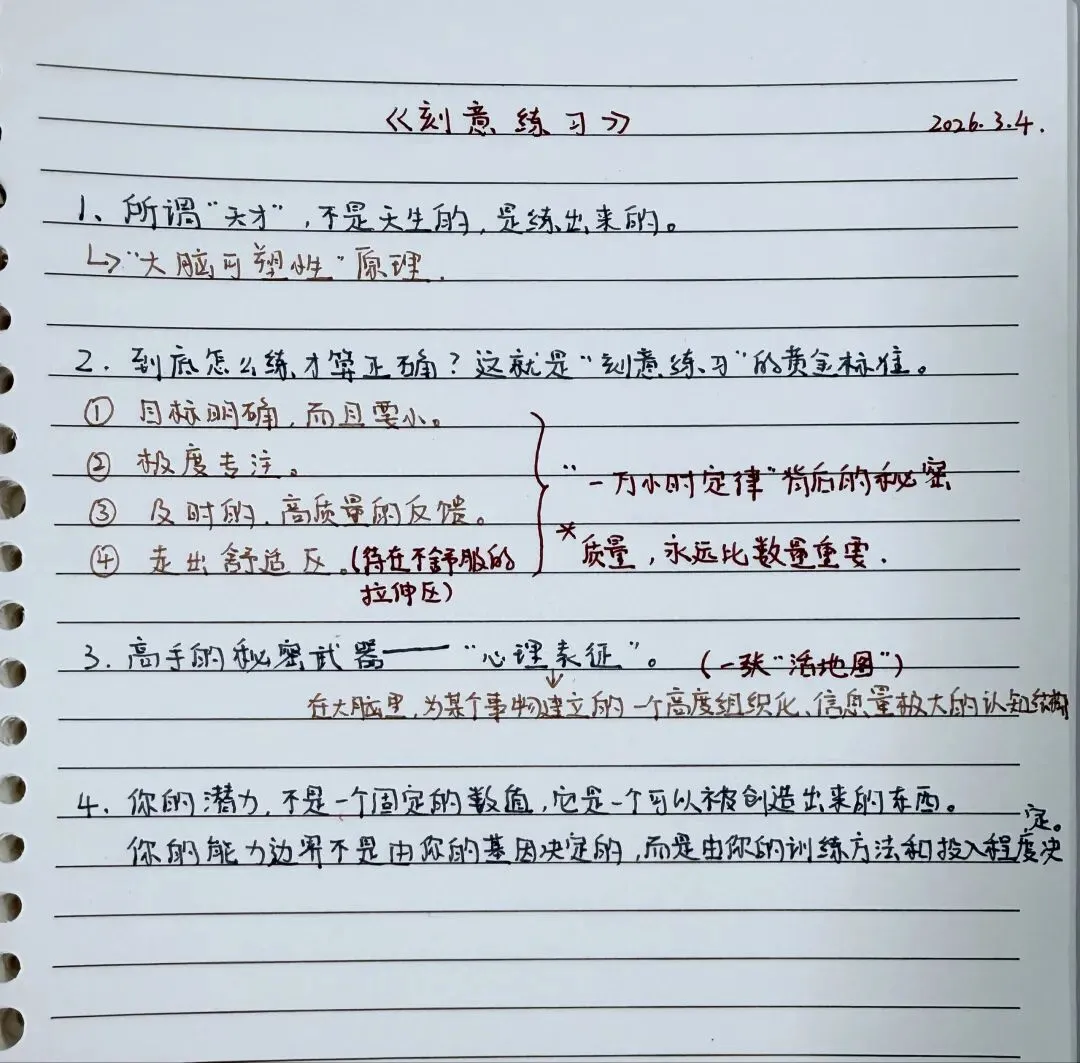 《刻意练习》 2026.3.4.
1、所谓“天才”,不是天生的,是练出来的。
↳“大脑可塑性”原理.
2. 到底怎么练才算正确?这就是“刻意练习”的黄金标准。
① 目标明确,而且要小。
② 极度专注。
③ 及时的、高质量的反馈。
④ 走出舒适区。(待在不舒服的
拉伸区)
“一万小时定律”背后的秘密
* 质量,永远比数量重要.
3. 高手的秘密武器——“心理表征”。 (一张“活地图”)
在大脑里,为某个事物建立的一个高度组织化、信息量极大的认知结构
4. 你的潜力,不是一个固定的数值,它是一个可以被创造出来的东西。
你的能力边界不是由你的基因决定的,而是由你的训练方法和投入程度决
定。